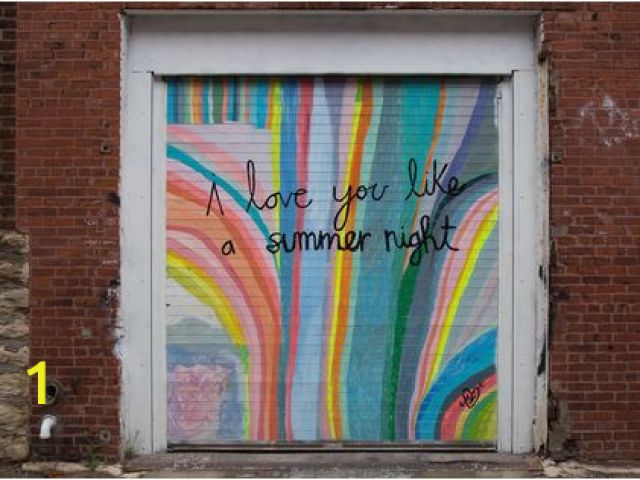 i love you like
a summer night
1